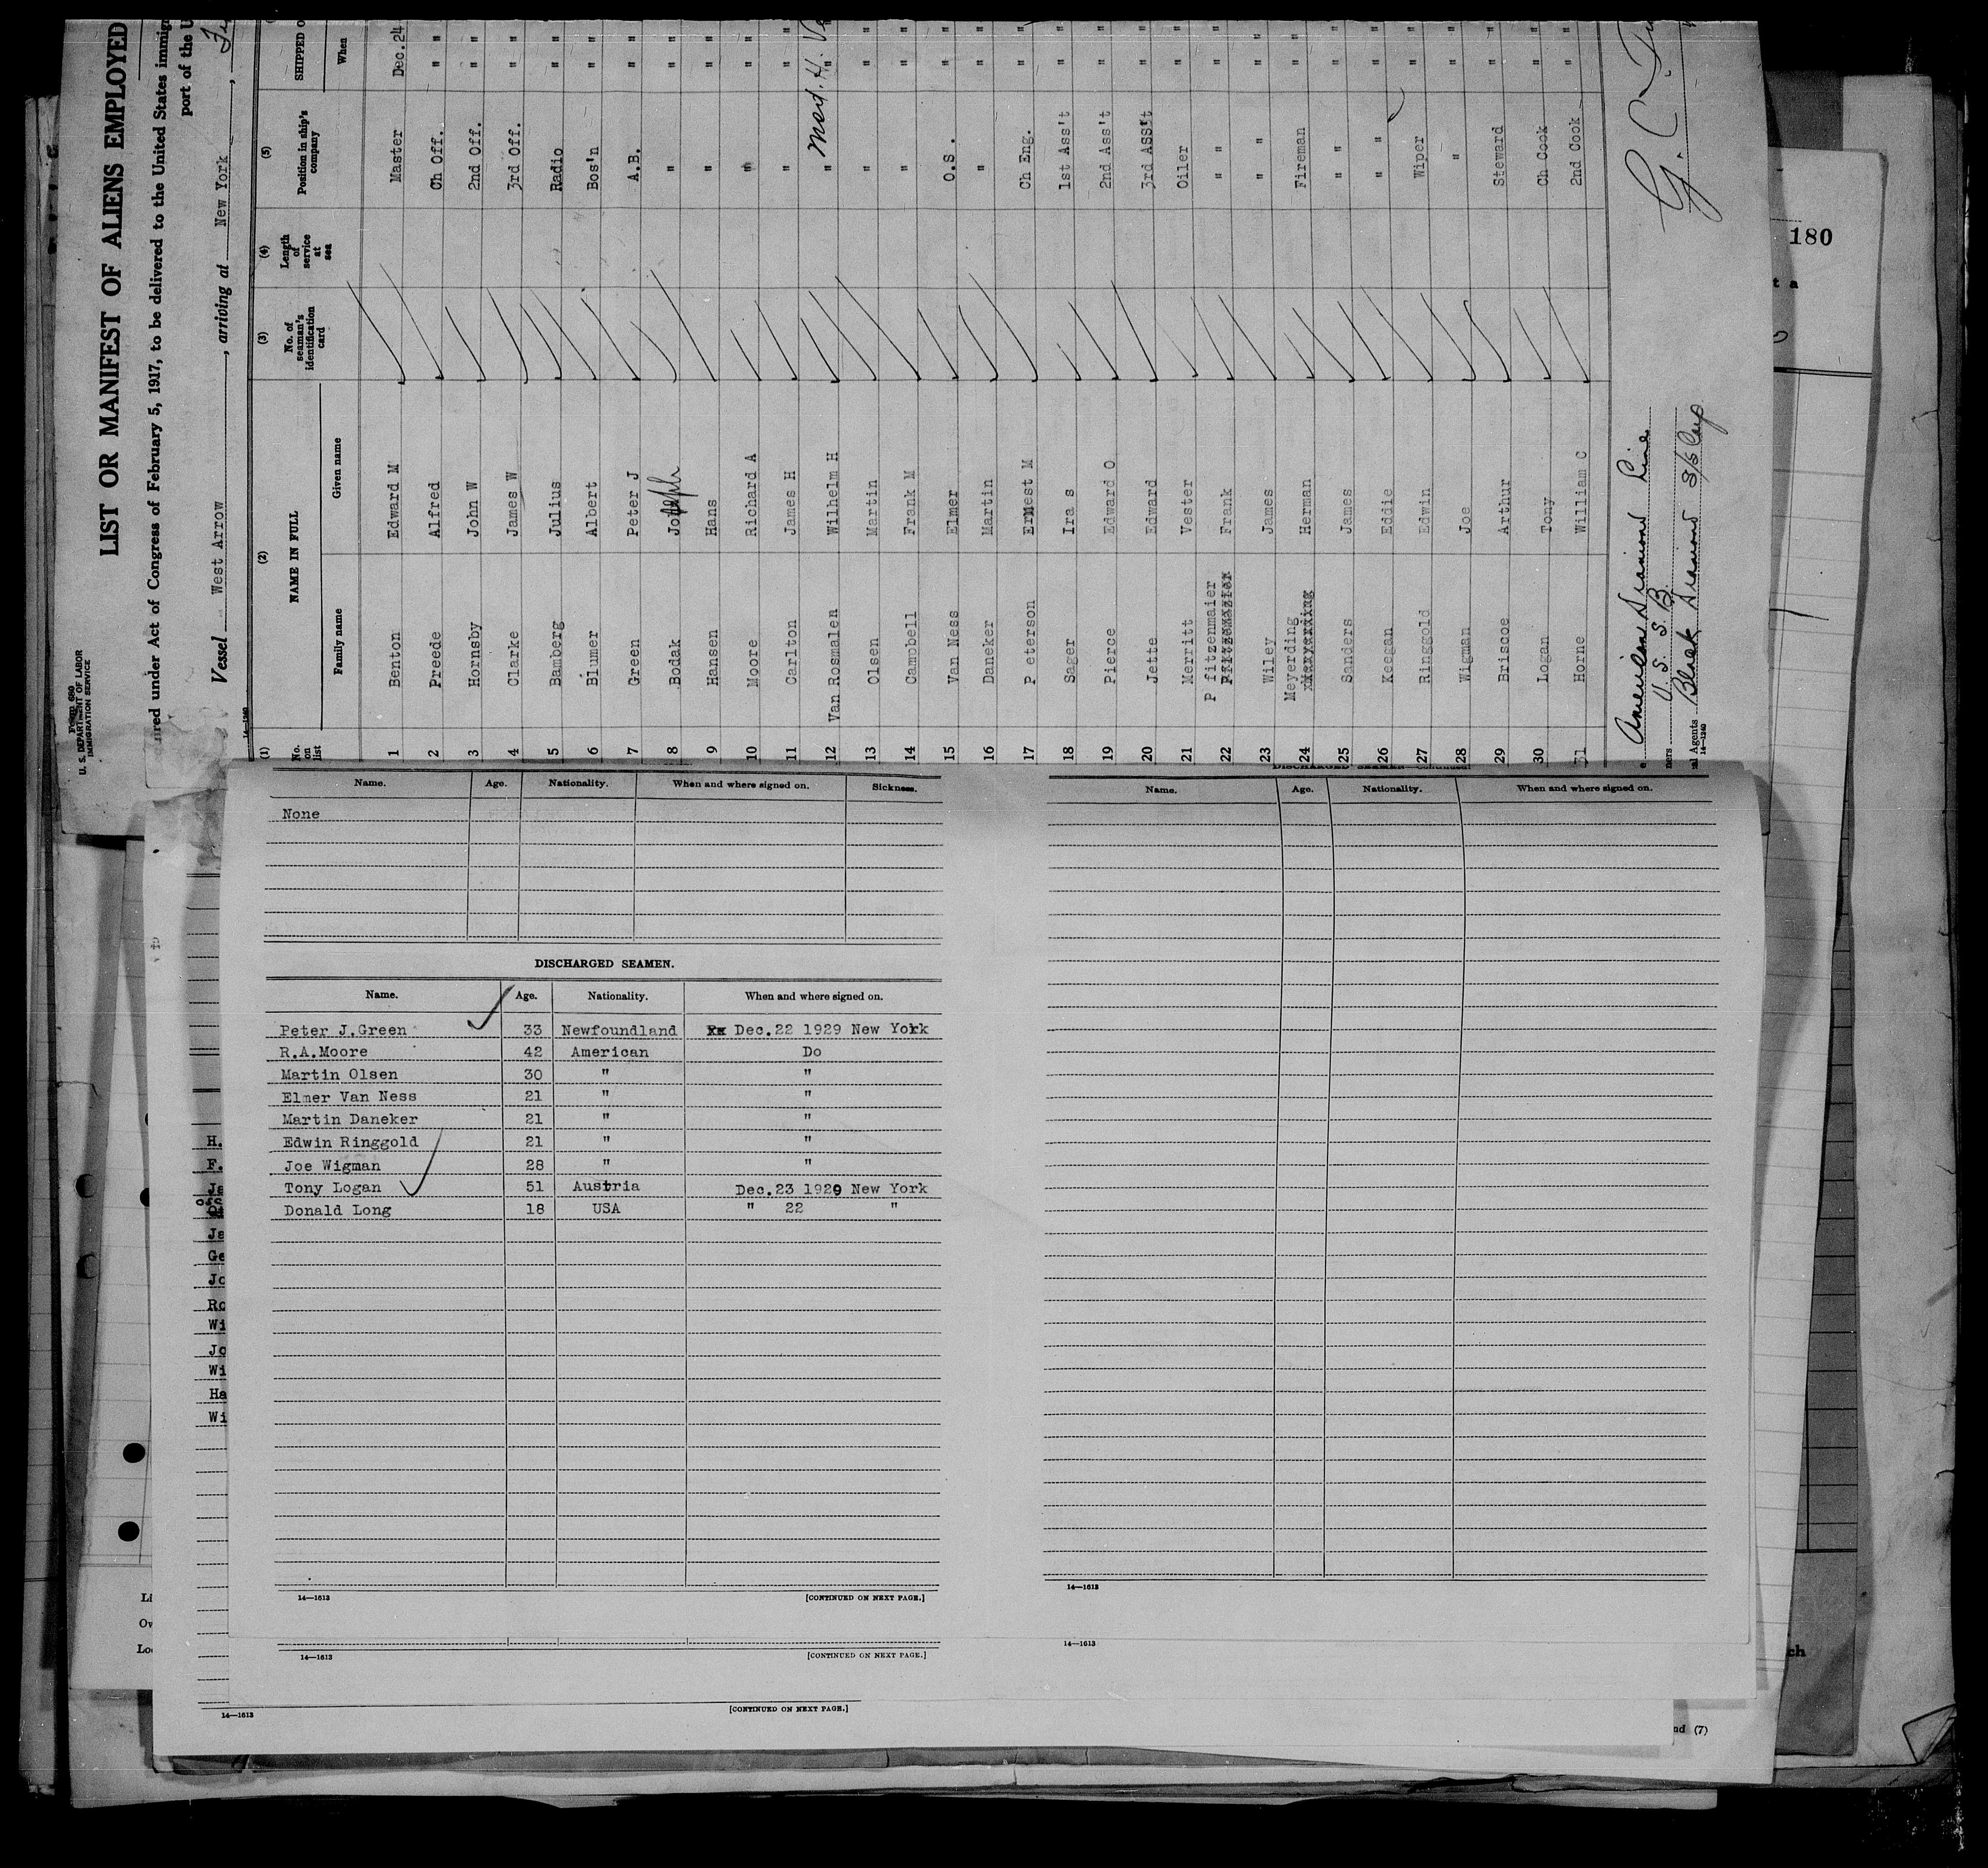 Form 680
U. S. DEPARTMENT OF LABOR
IMMIGRATION SERVICE
LIST OR MANIFEST OF ALIENS EMPLOYED
red under Act of Congress of February 5, 1917, to be delivered to the United States immig
port of the U
Vessel West Arrow, arriving at New York,
14-1240
(1) (2) (3) (4) (5)
No. on list NAME IN FULL No. of seaman's identification card Length of service at sea Position in ship's company SHIPPED O
Family name Given name When
1 Benton Edward M Master Dec.24
2 Preede Alfred Ch Off. " "
3 Hornsby John W 2nd Off. " "
4 Clarke James W 3rd Off. " "
5 Bamberg Julius Radio " "
6 Blumer Albert Bos'n " "
7 Green Peter J A.B. " "
8 Bodak Joseph " " "
9 Hansen Hans " " "
10 Moore Richard A " " "
11 Carlton James H " " "
12 Van Rosmalen Wilhelm H " " " Med. H.
13 Olsen Martin " " "
14 Campbell Frank M " " "
15 Van Ness Elmer O.S. " "
16 Daneker Martin " " "
17 P eterson Ernest M Ch Eng. " "
18 Sager Ira s 1st Ass't " "
19 Pierce Edward O 2nd Ass't " "
20 Jette Edward 3rd ASS't " "
21 Merritt Vester Oiler " "
22 P fitzenmaier Frank " " "
23 Wiley James " " "
24 Meyerding Herman Fireman " "
25 Sanders James " " "
26 Keegan Eddie " " "
27 Ringgold Edwin Wiper " "
28 Wigman Joe " " "
29 Briscoe Arthur Steward " "
30 Logan Tony Ch Cook " "
31 Horne William C 2nd Cook " "
American Diamond Line
ners U. S. S. B.
al Agents Black Diamond S/S Corp
14-1240
G. C.
180
t a
Name. Age. Nationality. When and where signed on. Sickness.
None
DISCHARGED SEAMEN.
Name. Age. Nationality. When and where signed on.
Peter J.Green 33 Newfoundland Dec.22 1929 New York
R.A.Moore 42 American Do
Martin Olsen 30 " "
Elmer Van Ness 21 " "
Martin Daneker 21 " "
Edwin Ringgold 21 " "
Joe Wigman 28 " "
Tony Logan 51 Austria Dec.23 1929 New York
Donald Long 18 USA " 22 "
14—1613 [CONTINUED ON NEXT PAGE.]
14—1613 [CONTINUED ON NEXT PAGE.]
14—1613 [CONTINUED ON NEXT PAGE.]
DISCHARGED SEAMEN—Continued
Name. Age. Nationality. When and where signed on.
14—1613
14—1613
H.
F.
Ja
Ja
Ge
Jo
Ro
Wi
Jo
Wi
Ha
Wi
Li
Ow
Loc
ch
nd (7)